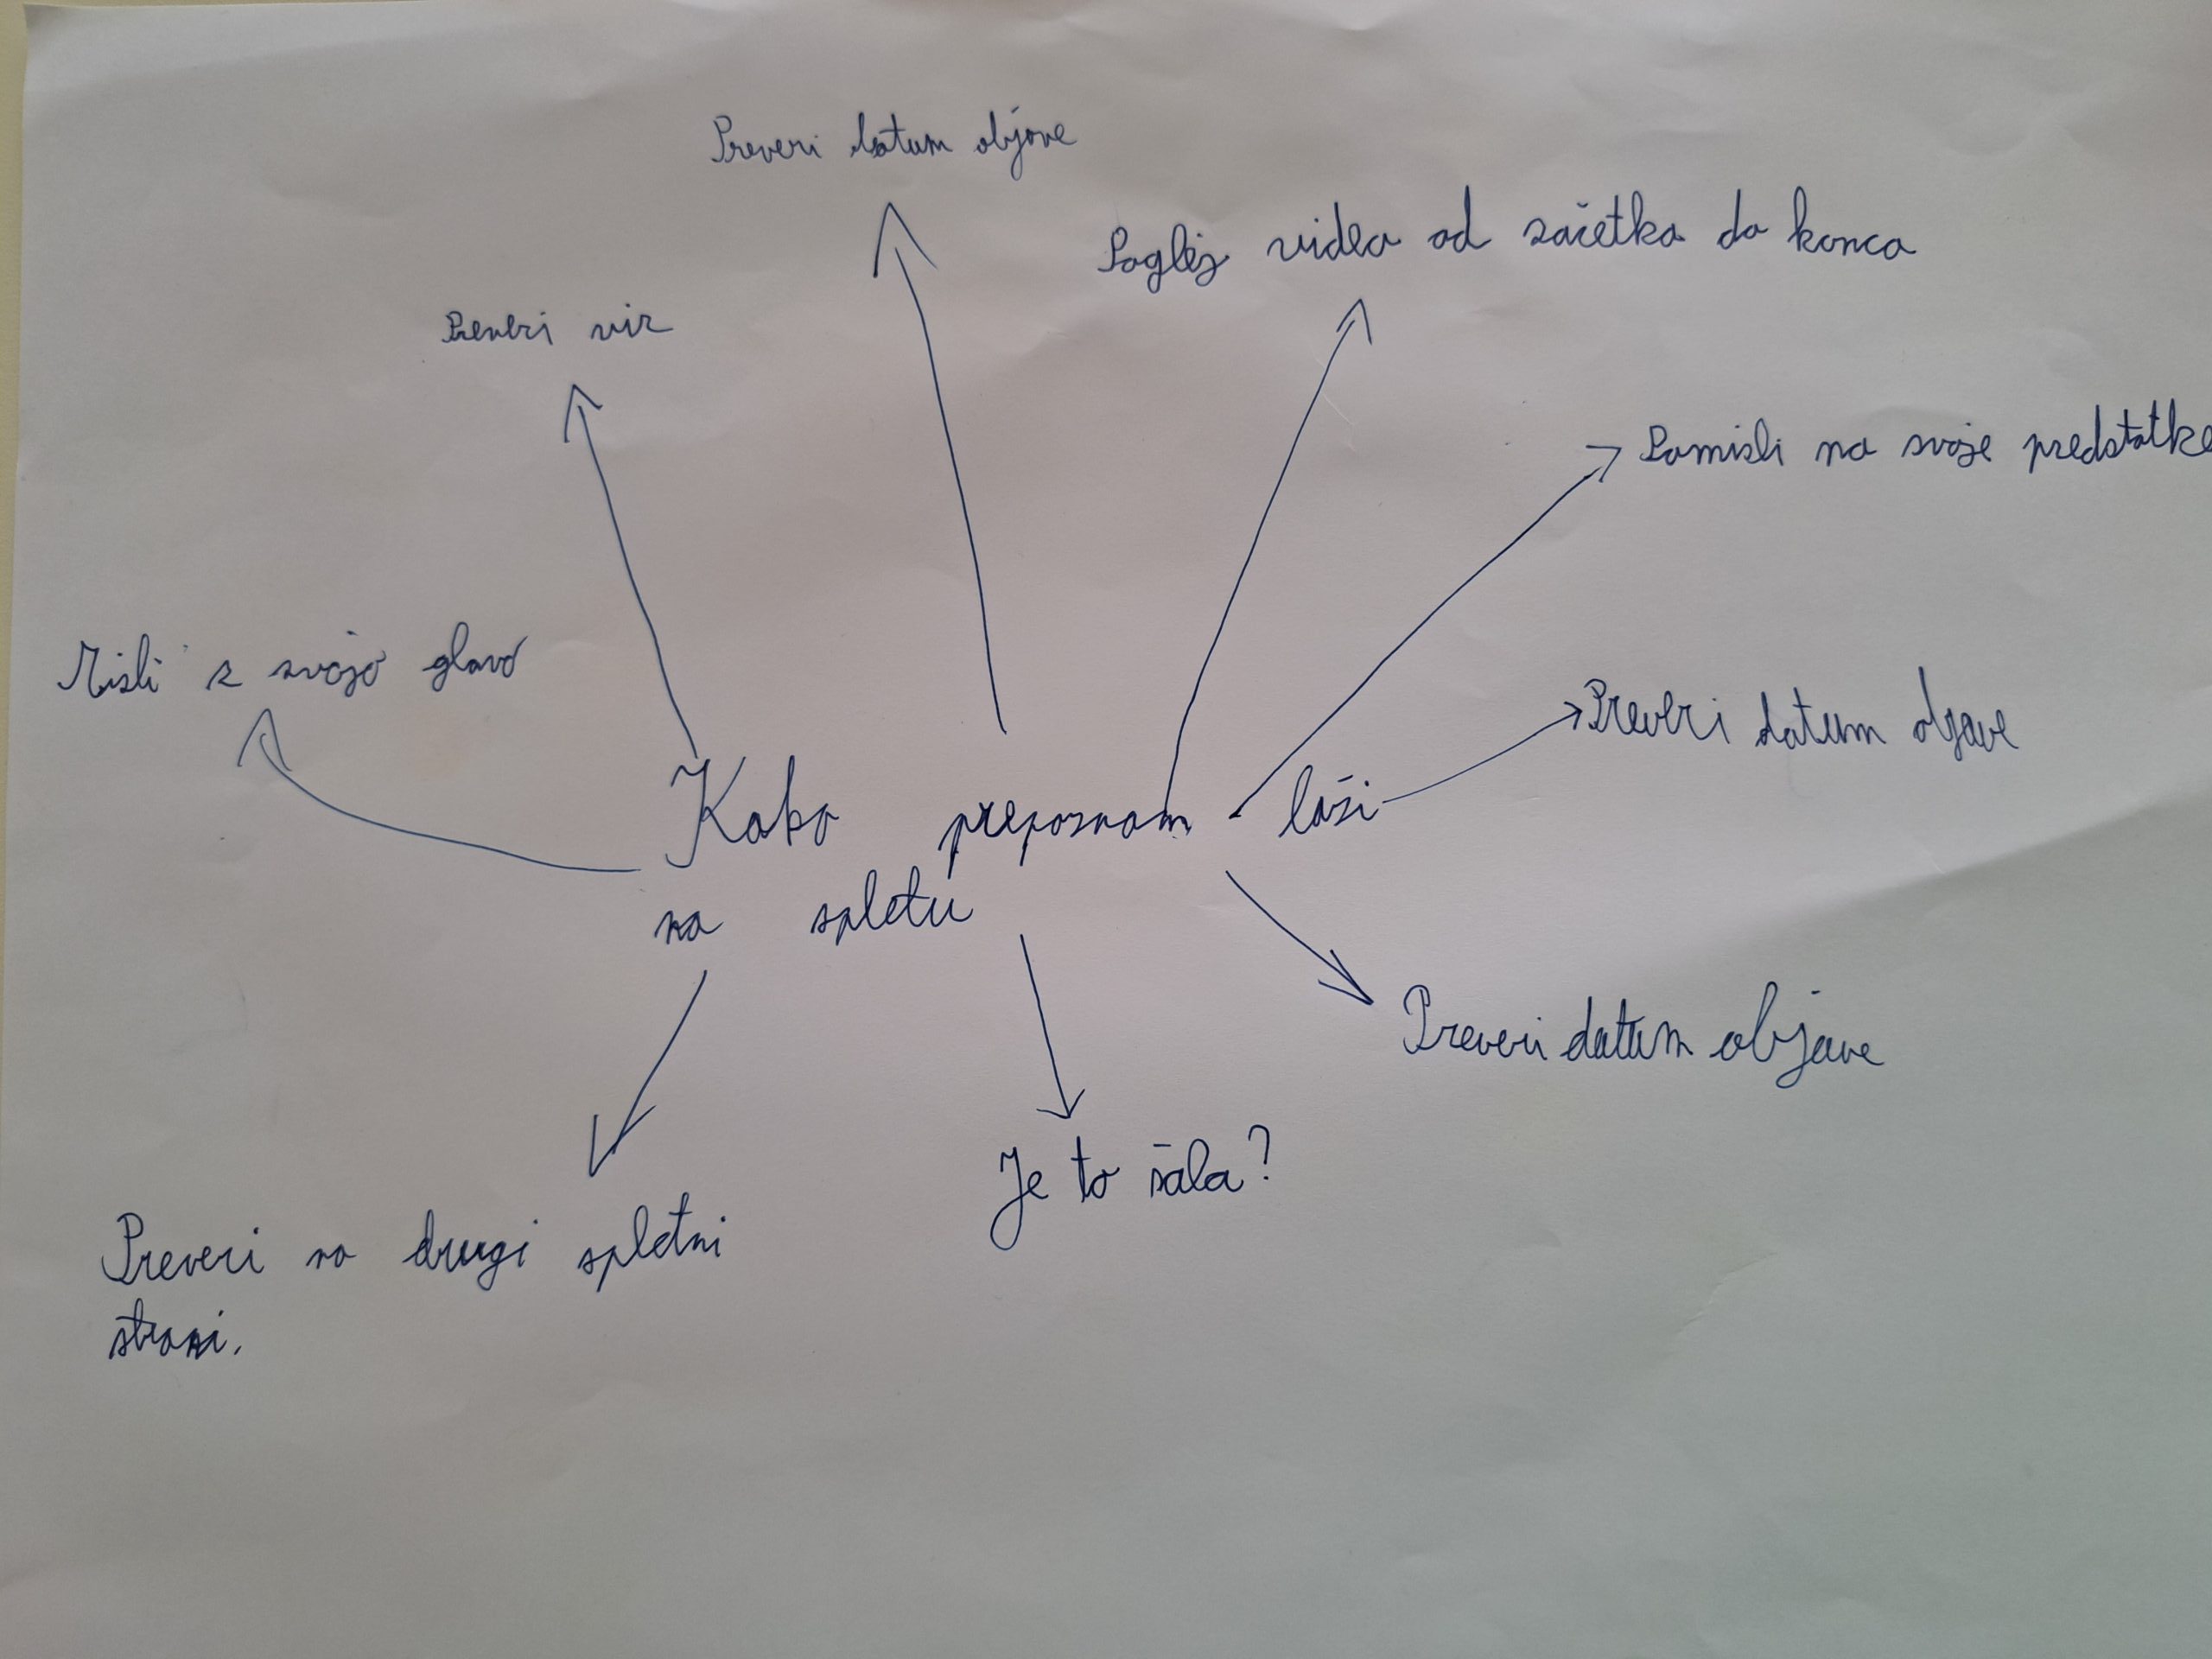 Preveri datum objave
Poglej videa od začetka do konca
Preveri vir
Pomisli na svoje predstatke
Misli s svojo glavo
Preveri datum objave
Kako prepoznam laži
na spletu
Preveri datum objave
Je to šala?
Preveri na drugi spletni
strani.